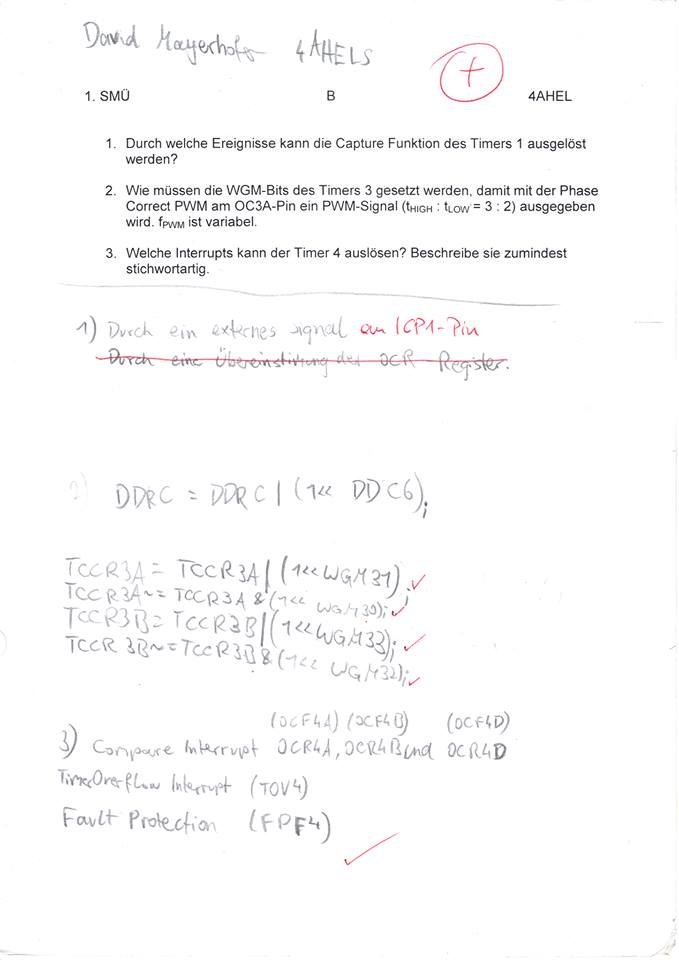 David Mayerhofer 4AHELS
+
1. SMÜ B 4AHEL
1. Durch welche Ereignisse kann die Capture Funktion des Timers 1 ausgelöst
werden?
2. Wie müssen die WGM-Bits des Timers 3 gesetzt werden, damit mit der Phase
Correct PWM am OC3A-Pin ein PWM-Signal (tHIGH : tLOW = 3 : 2) ausgegeben
wird. fPWM ist variabel.
3. Welche Interrupts kann der Timer 4 auslösen? Beschreibe sie zumindest
stichwortartig.
1) Durch ein externes signal am ICP1-Pin
Durch eine Übereinstimung der OCR Register.
2) DDRC = DDRC | (1<< DDC6);
TCCR3A = TCCR3A | (1<<WGM31);
TCCR3A ~= TCCR3A & (1<< WGM30);
TCCR3B = TCCR3B | (1<<WGM33);
TCCR3B ~= TCCR3B & (1<< WGM32);
(OCF4A) (OCF4B) (OCF4D)
3) Compare Interrupt OCR4A, OCR4B und OCR4D
TimerOverflow Interrupt (TOV4)
Fault Protection (FPF4)